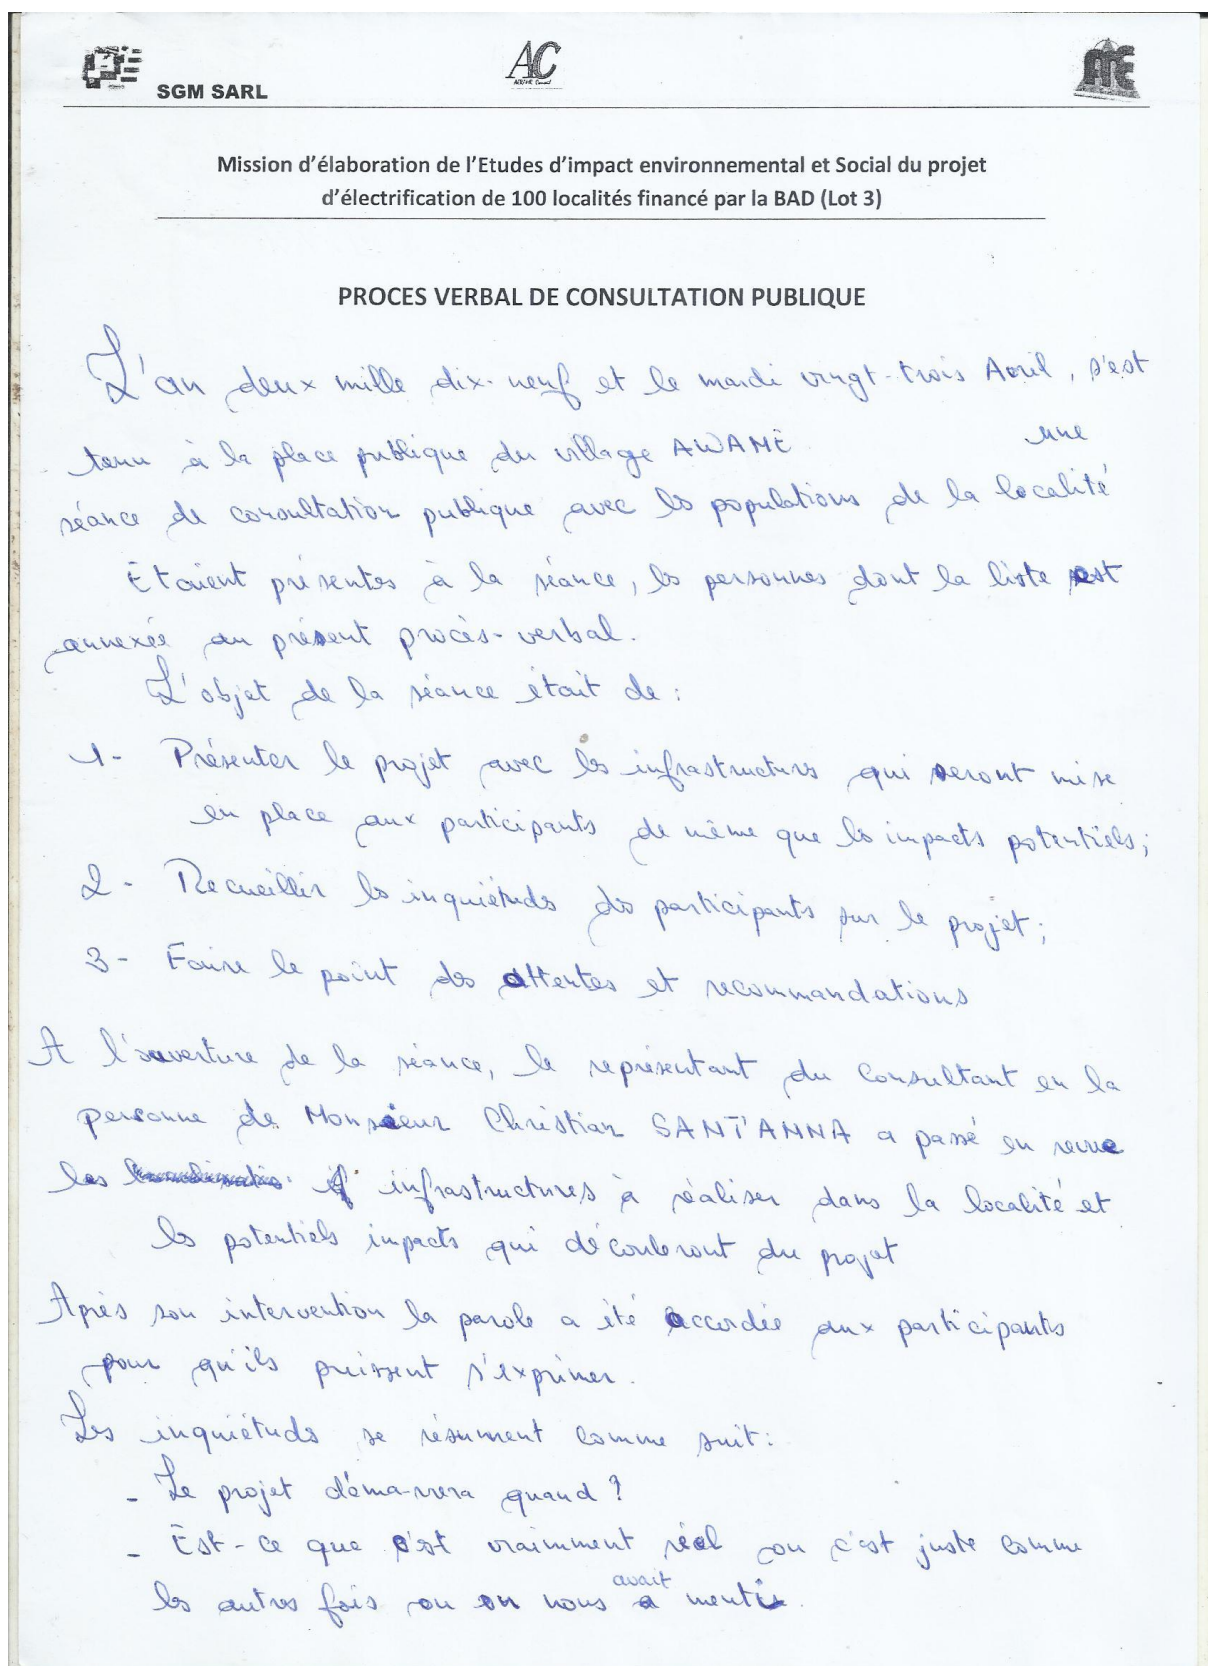 SGM SARL
AC
Mission d'élaboration de l'Etudes d'impact environnemental et Social du projet
d'électrification de 100 localités financé par la BAD (Lot 3)
PROCES VERBAL DE CONSULTATION PUBLIQUE
L'an deux mille dix-neuf et le mardi vingt-trois Avril, s'est
tenu à la place publique du village AWAME une
séance de consultation publique avec les populations de la localité
Etaient présentes à la séance, les personnes dont la liste est
annexée au présent procès-verbal.
L'objet de la séance était de :
1- Présenter le projet avec les infrastructures qui seront mise
en place aux participants de même que les impacts potentiels;
2- Recueillir les inquiétudes des participants sur le projet;
3- Faire le point des attentes et recommandations
A l'ouverture de la séance, le représentant du consultant en la
personne de Monsieur Christian SANT'ANNA a passé en revue
les infrastructures à réaliser dans la localité et
les potentiels impacts qui découleront du projet
Après son intervention la parole a été accordée aux participants
pour qu'ils puissent s'exprimer.
Les inquiétudes se résument comme suit :
- Le projet démarrera quand ?
- Est-ce que c'est vraimment réel ou c'est juste comme
les autres fois ou on nous avait menti.